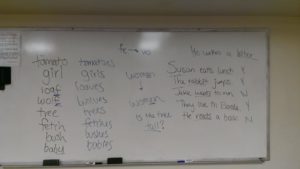 fe → ve
tomato tomatoes
girl girls
loaf loaves
wolf wolves
tree trees
fetch fetches
bush bushes
baby babies
woman
↓
women
is the tree
tall?
He writes a letter
Susan eats lunch Y
The rabbit jumps. Y
Jake wants to run N
They live in Y
He reads a book N